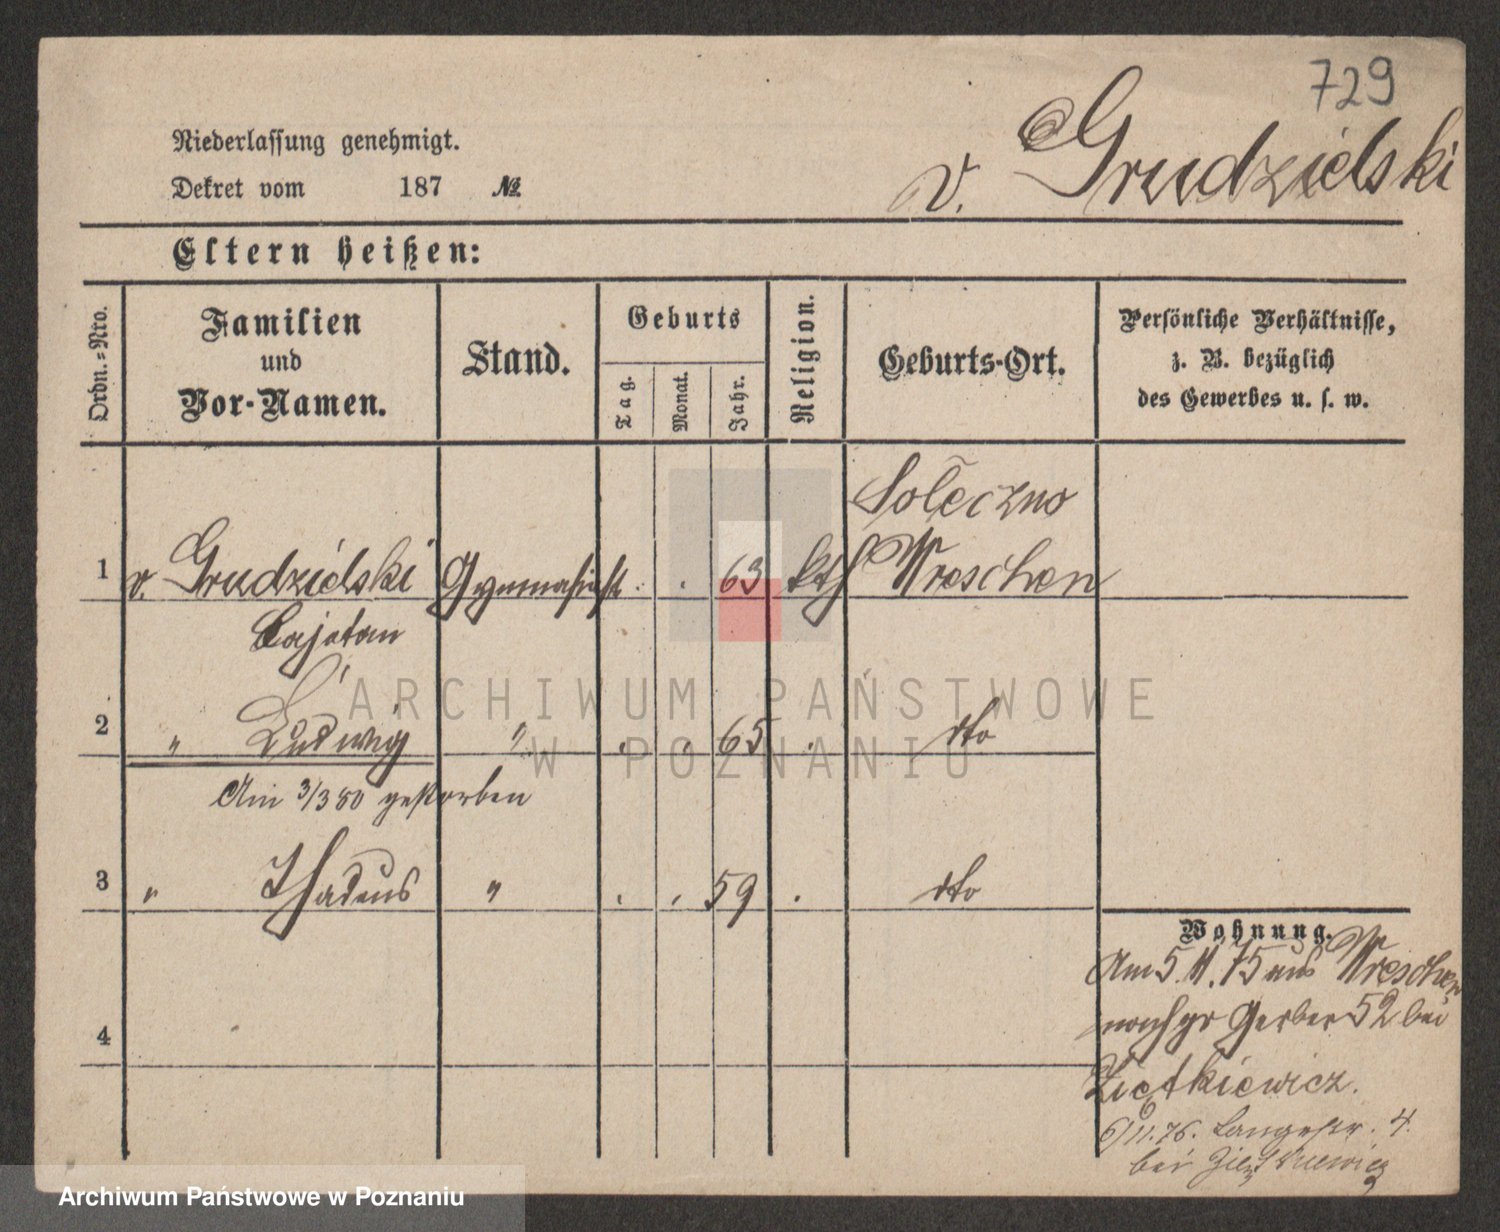 729
Niederlassung genehmigt.
Dekret vom 187 №
v. Grudzielski
Eltern heißen:
Ordn.=Nro.
Familien
und
Vor-Namen.
Stand.
Geburts
Tag.
Monat.
Jahr.
Religion.
Geburts-Ort.
Persönliche Verhältnisse,
z. B. bezüglich
des Gewerbes u. s. w.
Soleczno
1 v. Grudzielski Gymnasiast . . 63 kth Wreschen
Cajetan
2 " Ludwig " . . 65 . dto
Am 3/3 80 gestorben
3 " Thadeus " . . 59 . dto
4
Wohnung.
Am 5.11.75 aus Wreschen
nach gr Gerber 52 bei
Zietkiewicz.
6/11.76. Langestr. 4.
bei Zietkiewicz
ARCHIWUM PAŃSTWOWE
W POZNANIU
Archiwum Państwowe w Poznaniu